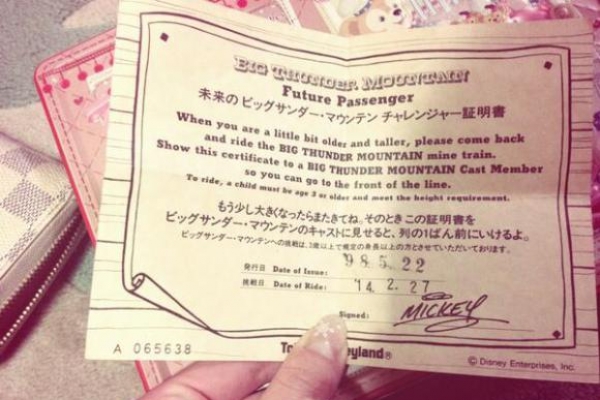 BIG THUNDER MOUNTAIN
Future Passenger
未来の ビッグサンダー・マウンテン チャレンジャー証明書
When you are a little bit older and taller, please come back
and ride the BIG THUNDER MOUNTAIN mine train.
Show this certificate to a BIG THUNDER MOUNTAIN Cast Member
so you can go to the front of the line.
To ride, a child must be age 3 or older and meet the height requirement.
もう少し大きくなったらまたきてね。そのとき この証明書を
ビッグサンダー・マウンテンのキャストに見せると、列の1ばん前にいけるよ。
ビッグサンダー・マウンテンへの挑戦は、3歳以上で規定の身長以上の方とさせていただいております。
発行日 Date of Issue: 98.5.22
挑戦日 Date of Ride: '14.2.27
Signed: MICKEY
A 065638
© Disney Enterprises, Inc.